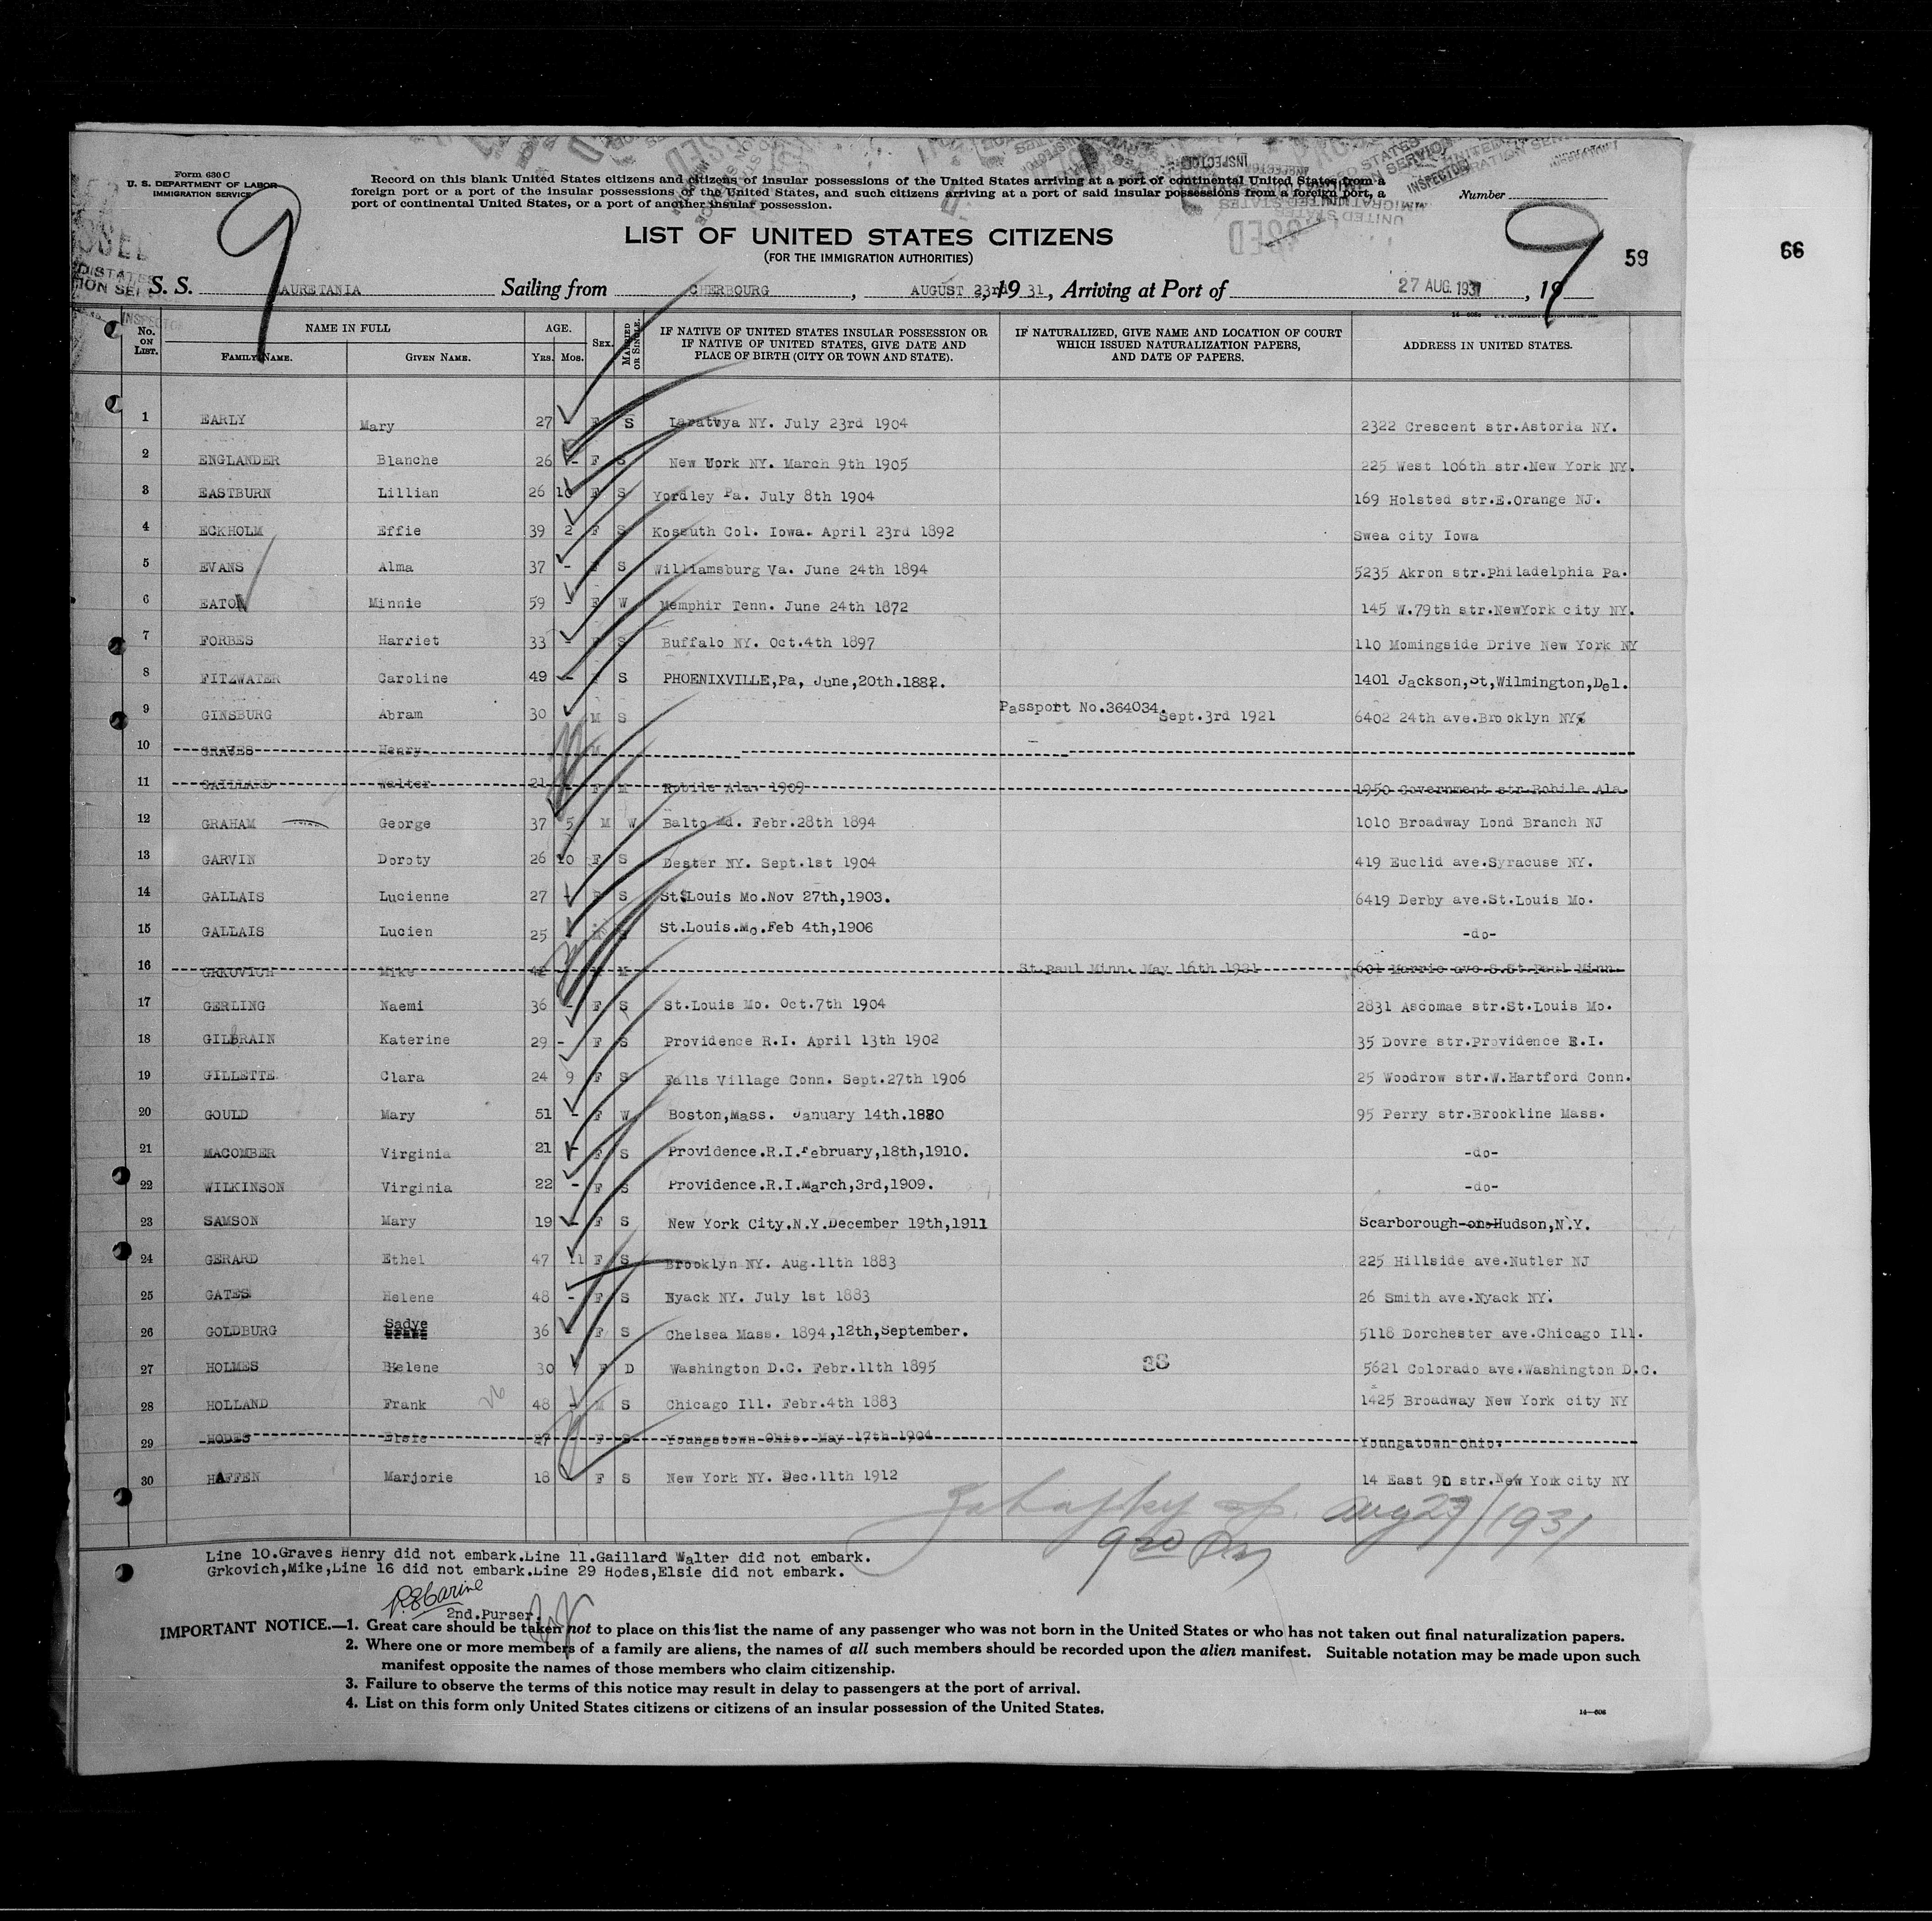 Form 630 C
U. S. DEPARTMENT OF LABOR
IMMIGRATION SERVICE
Record on this blank United States citizens and citizens of insular possessions of the United States arriving at a port of continental United States from a
foreign port or a port of the insular possessions of the United States, and such citizens arriving at a port of said insular possessions from a foreign port, a
port of continental United States, or a port of another insular possession.
Number
9
9
LIST OF UNITED STATES CITIZENS
(FOR THE IMMIGRATION AUTHORITIES)
59
66
S. S. AURETANIA Sailing from CHERBOURG, AUGUST 23rd, 19 31, Arriving at Port of 27 AUG. 1931, 19
No. ON LIST. NAME IN FULL FAMILY NAME. GIVEN NAME. AGE. YRS. MOS. SEX. MARRIED OR SINGLE. IF NATIVE OF UNITED STATES INSULAR POSSESSION OR IF NATIVE OF UNITED STATES, GIVE DATE AND PLACE OF BIRTH (CITY OR TOWN AND STATE). IF NATURALIZED, GIVE NAME AND LOCATION OF COURT WHICH ISSUED NATURALIZATION PAPERS, AND DATE OF PAPERS. ADDRESS IN UNITED STATES.
1 EARLY Mary 27 F S NY. July 23rd 1904 2322 Crescent str.Astoria NY.
2 ENGLANDER Blanche 26 - F S New Uork NY. March 9th 1905 225 West 106th str.New York NY.
3 EASTBURN Lillian 26 10 F S Yordley Pa. July 8th 1904 169 Holsted str.E.Orange NJ.
4 ECKHOLM Effie 39 2 F S Kossuth Col. Iowa. April 23rd 1892 Swea city Iowa
5 EVANS Alma 37 - F S Williamsburg Va. June 24th 1894 5235 Akron str.Philadelphia Pa.
6 EATON Minnie 59 - F W Memphir Tenn. June 24th 1872 145 W.79th str.NewYork city NY.
7 FORBES Harriet 33 - F S Buffalo NY. Oct.4th 1897 110 Momingside Drive New York NY
8 FITZWATER Caroline 49 - F S PHOENIXVILLE,Pa, June,20th.1882. 1401 Jackson,St,Wilmington,Del.
9 GINSBURG Abram 30 M S Passport No.364034. Sept.3rd 1921 6402 24th ave.Brooklyn NY
10 GRAVES Henry M
11 GAILLARD Walter 21 F M Robile Ala. 1909 1950 Government str.Robile Ala.
12 GRAHAM George 37 5 M W Balto Md. Febr.28th 1894 1010 Broadway Lond Branch NJ
13 GARVIN Doroty 26 10 F S Dester NY. Sept.1st 1904 419 Euclid ave.Syracuse NY.
14 GALLAIS Lucienne 27 - F S St.Louis Mo.Nov 27th,1903. 6419 Derby ave.St.Louis Mo.
15 GALLAIS Lucien 25 M S St.Louis.Mo.Feb 4th,1906 -do-
16 GRKOVICH Mike 42 M M St.Paul Minn. May 16th 1921 601 Marrie ave.S.St.Paul Minn.
17 GERLING Naemi 36 - F S St.Louis Mo. Oct.7th 1904 2831 Ascomae str.St.Louis Mo.
18 GILBRAIN Katerine 29 - F S Providence R.I. April 13th 1902 35 Dovre str.Providence R.I.
19 GILLETTE Clara 24 9 F S Falls Village Conn. Sept.27th 1906 25 Woodrow str.W.Hartford Conn.
20 GOULD Mary 51 - F W Boston,Mass. January 14th.1880 95 Perry str.Brookline Mass.
21 MACOMBER Virginia 21 - F S Providence.R.I.February,18th,1910. -do-
22 WILKINSON Virginia 22 - F S Providence.R.I.March,3rd,1909. -do-
23 SAMSON Mary 19 - F S New York City.N.Y.December 19th,1911 Scarborough-on-Hudson,N.Y.
24 GERARD Ethel 47 11 F S Brooklyn NY. Aug.11th 1883 225 Hillside ave.Nutler NJ
25 GATES Helene 48 - F S Nyack NY. July 1st 1883 26 Smith ave.Nyack NY.
26 GOLDBURG Sadye 36 - F S Chelsea Mass. 1894,12th,September. 5118 Dorchester ave.Chicago Ill.
27 HOLMES Helene 30 F D Washington D.C. Febr.11th 1895 5621 Colorado ave.Washington D.C.
28 HOLLAND Frank 26 48 - M S Chicago Ill. Febr.4th 1883 1425 Broadway New York city NY
29 HODES Elsie 27 F S Youngstown Ohio. May 17th 1904 Youngatown Ohio.
30 HAFFEN Marjorie 18 F S New York NY. Dec.11th 1912 14 East 9D str.New York city NY
Aug 27/1931
9 20 Pm
Line 10.Graves Henry did not embark.Line 11.Gaillard Walter did not embark.
Grkovich,Mike,Line 16 did not embark.Line 29 Hodes,Elsie did not embark.
2nd.Purser.
IMPORTANT NOTICE.—1. Great care should be taken not to place on this list the name of any passenger who was not born in the United States or who has not taken out final naturalization papers.
2. Where one or more members of a family are aliens, the names of all such members should be recorded upon the alien manifest. Suitable notation may be made upon such
manifest opposite the names of those members who claim citizenship.
3. Failure to observe the terms of this notice may result in delay to passengers at the port of arrival.
4. List on this form only United States citizens or citizens of an insular possession of the United States.
14—606